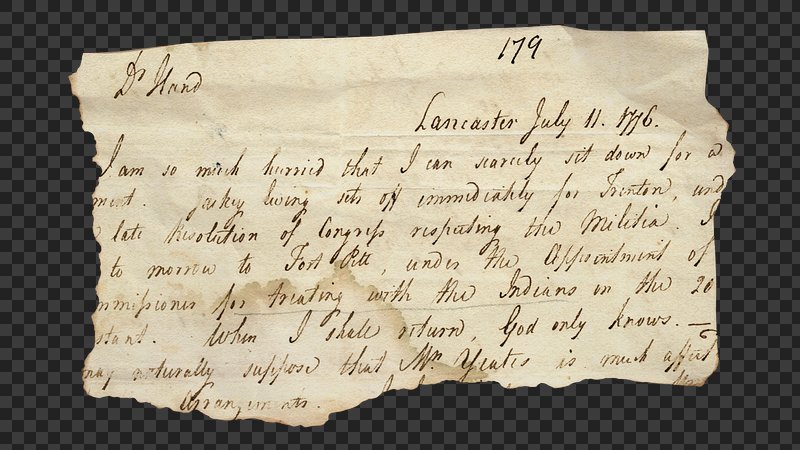 179
Dr Hand
Lancaster July 11. 1776.
I am so much hurried that I can scarcely sit down for a
ment. living sets off immediately for Trenton, und
late Resolution of Congress respecting the Militia. I
to morrow to Fort Pitt, under the Appointment of
mmissioner for treating with the Indians on the 20
stant. When I shall return, God only knows. —
may naturally suppose that Mrs. Yeates is much affect
Arrangements.